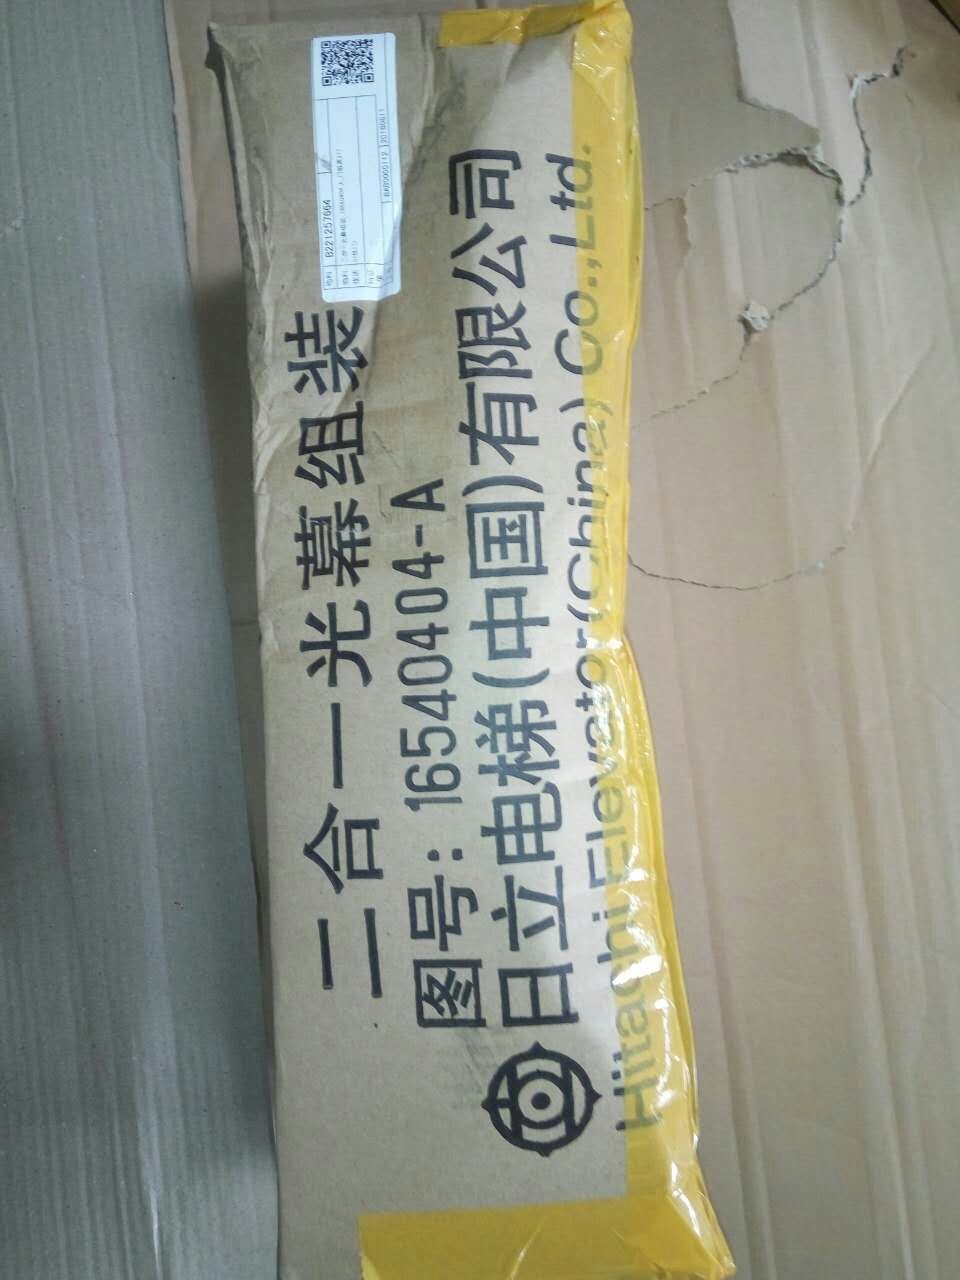 二合一光幕组装
图号: 16540404-A
日立电梯(中国)有限公司
Hitachi Elevator(China) Co.,Ltd.
B221257664
20180611